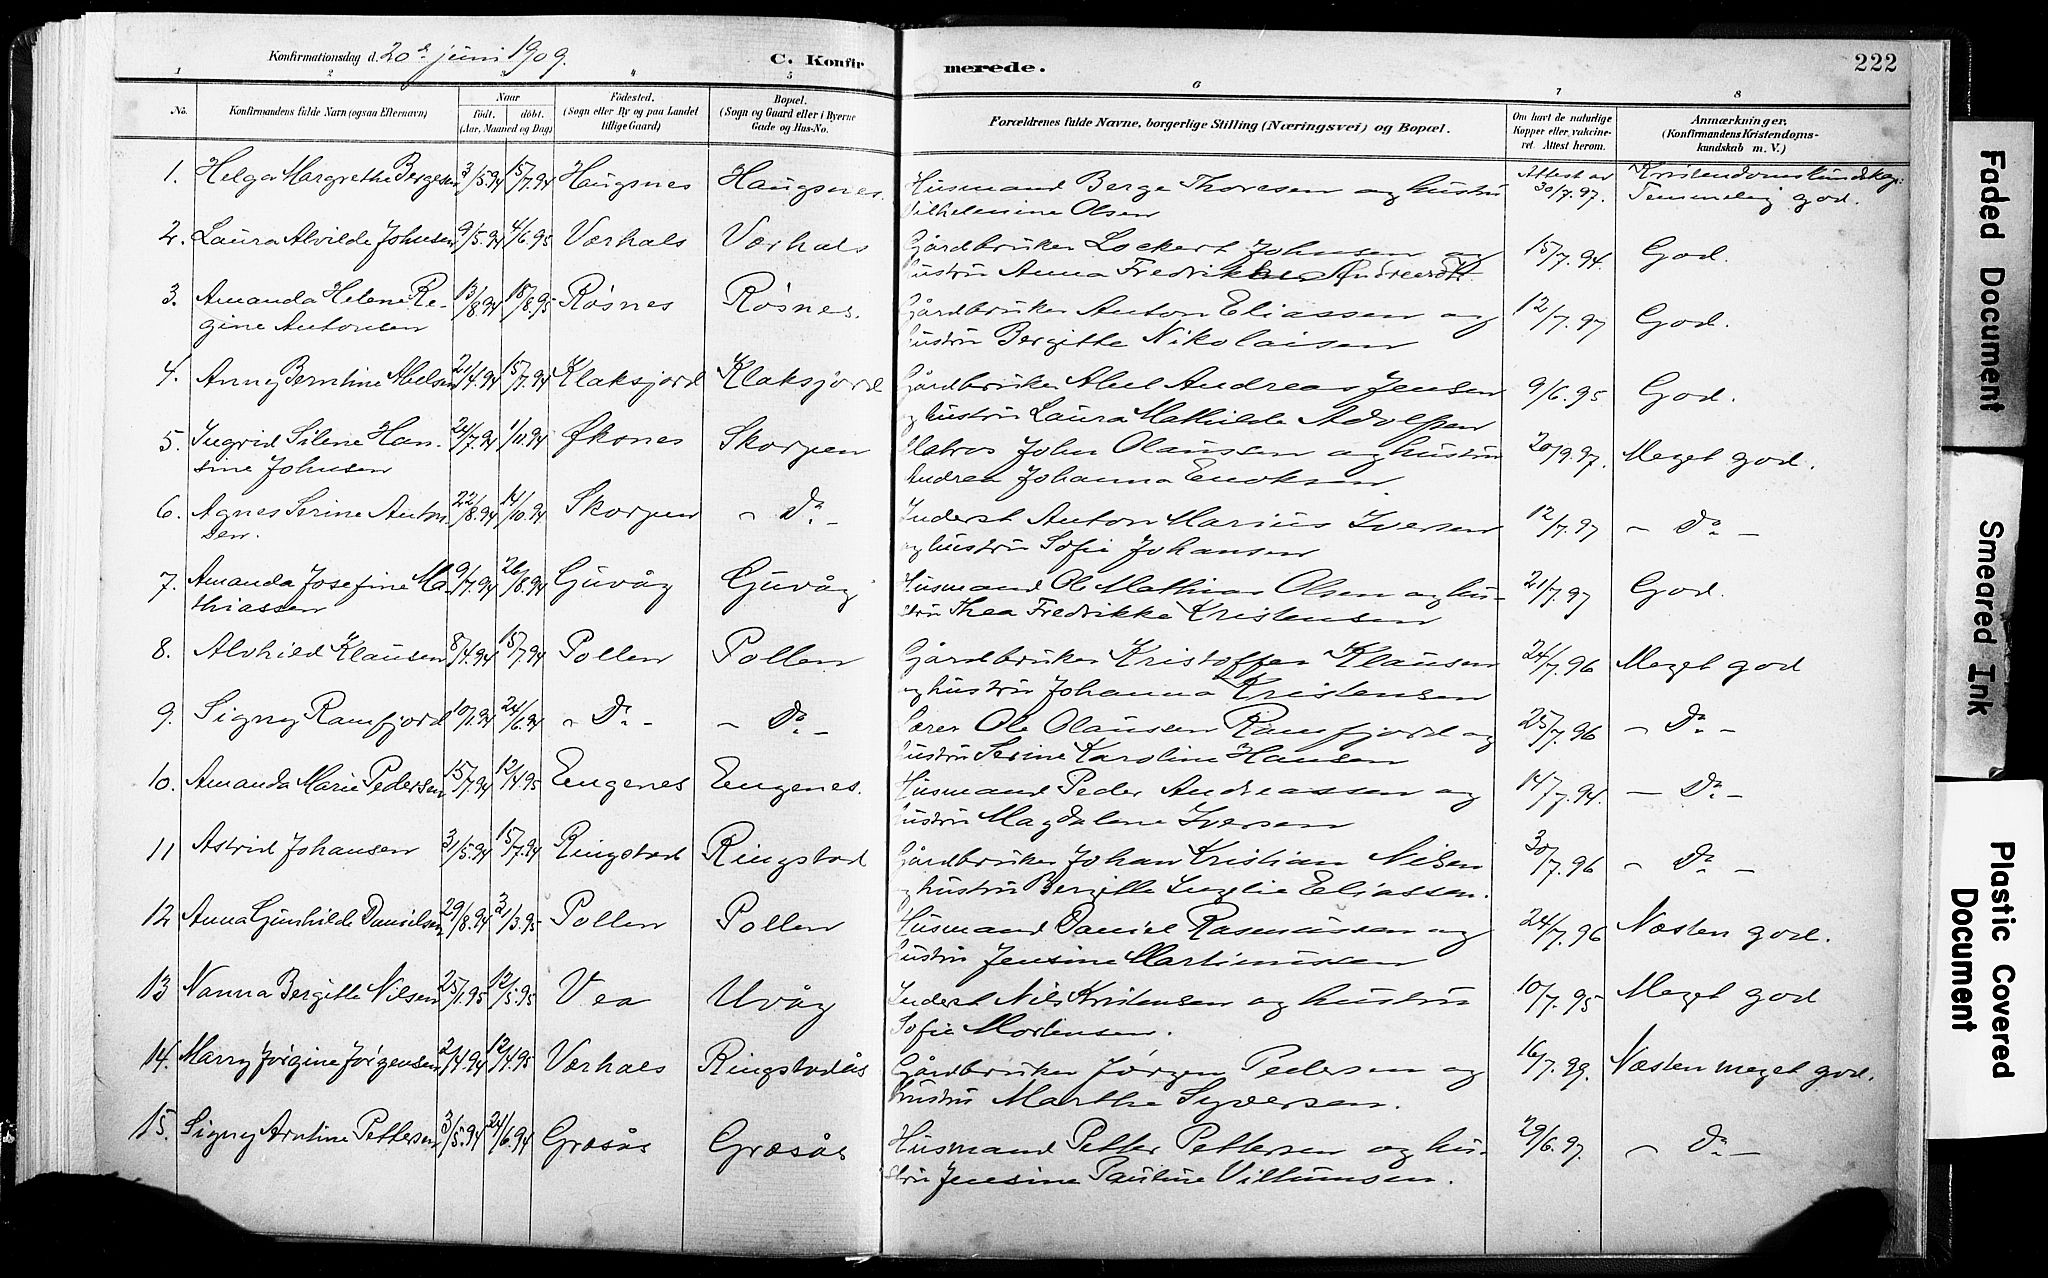 Konfirmationsdag d. 20de juni 1909.
C. Konfirmerede.
222
1 2 3 4 5 6 7 8
No. Konfirmandens fulde Navn (ogsaa Efternavn) Naar født. døbt. (Aar, Maaned og Dag) Fødested. (Sogn eller By og paa Landet tillige Gaard) Bopæl. (Sogn og Gaard eller i Byerne Gade og Hus-No. Forældrenes fulde Navne, borgerlige Stilling (Næringsvei) og Bopæl. Om havt de naturlige Kopper eller vaccineret. Attest herom. Anmærkninger. (Konfirmandens Kristendomskundskab m. V.)
1. Helga Margrethe Bergesen 3/5.94 15/7.94 Haugsnes Haugsnes. Husmand Berge Thoresen og hustru Attest av 30/7.97. Kristendomskundskap:
Vilhelmine Olsen Temmelig god.
2. Laura Alvilde Johnsen 9/5.94 4/6.95 Værhals Værhals Gårdbruker Lockert Johnsen og 15/7.94. God.
hustru Anna Fredrikke
3. Amanda Helene Re- 13/8.94 18/8.95 Røsnes Røsnes. Gårdbruker Anton Eliassen og 12/7.97 God.
gine Antonsen hustru Bergitte Nikolaisen
4. Anny Berntine Abelsen 21/4.94 15/7.94 Klaksjord Klaksjord Gårdbruker Abel Andreas Jensen 9/6.95 God.
og hustru Laura Mathilde Adolfsen
5. Ingrid Silene Han- 24/7.94 1/10.94 Øksnes Skorpen Matros John Olaussen og hustru 20/9.97. Meget god.
sine Johnsen Andrea Johanna Enoksen
6. Agnes Serine Anton- 22/8.94 14/10.94 Skorpen - Do. - Inderst Anton Marius Iversen 12/7.97 - Do. -
sen. og hustru Sofie Johansen
7. Amanda Josefine Ma- 9/7.94 26/8.94 Guvåg Guvåg Husmand Ole Mathias Olsen og hu- 21/7.97 God.
thiassen stru Thea Fredrikke Kristensen
8. Alvhild Klausen 8/4.94 15/7.94 Pollen Pollen Gårdbruker Kristoffer Klausen 24/7.96 Meget god
og hustru Johanna Kristensen
9. Signy Ramfjord 10/1.94 24/6.94 - Do. - - Do. - Lærer Ole Olaussen Ramfjord og 25/7.96 - Do. -
hustru Serine Karoline Hansen
10. Amanda Marie Pedersen 15/7.94 12/4.95 Eengenes Eengenes. Husmand Peder Andreassen og 14/7.94. - Do. -
hustru Magdalene Iversen
11 Astrid Johansen 31/5.94 15/7.94 Ringstad Ringstad Gårdbruker Johan Kristian Nilsen 30/7.96 - Do. -
og hustru Bergitte Eliassen.
12 Anna Gunhilde Danielsen 29/8.94 31/3.95 Pollen Pollen Husmand Daniel Rasmussen og 24/7.96 Næsten god.
hustru Jensine Martinussen
13 Nanna Bergitte Nilsen 25/1.95 12/5.95 Vea Uvåg Inderst Nils Kristensen og hustru 10/7.95 Meget god
Sofie Mortensen.
14. Marry Jørgine Jørgensen 2/4.94 12/4.95 Værhals Ringstadås Gårdbruker Jørgen Pedersen og 16/7.99. Næsten meget god.
hustru Marthe Syversen.
15. Signy Arntine Pettersen 3/5.94 24/6.94 Grøsås Grøsås Husmand Petter Pettersen og hu- 29/6.97. - Do. -
stru Jensine Pauline Villumsen.
Faded Document
Smeared Ink
Plastic Covered
Document